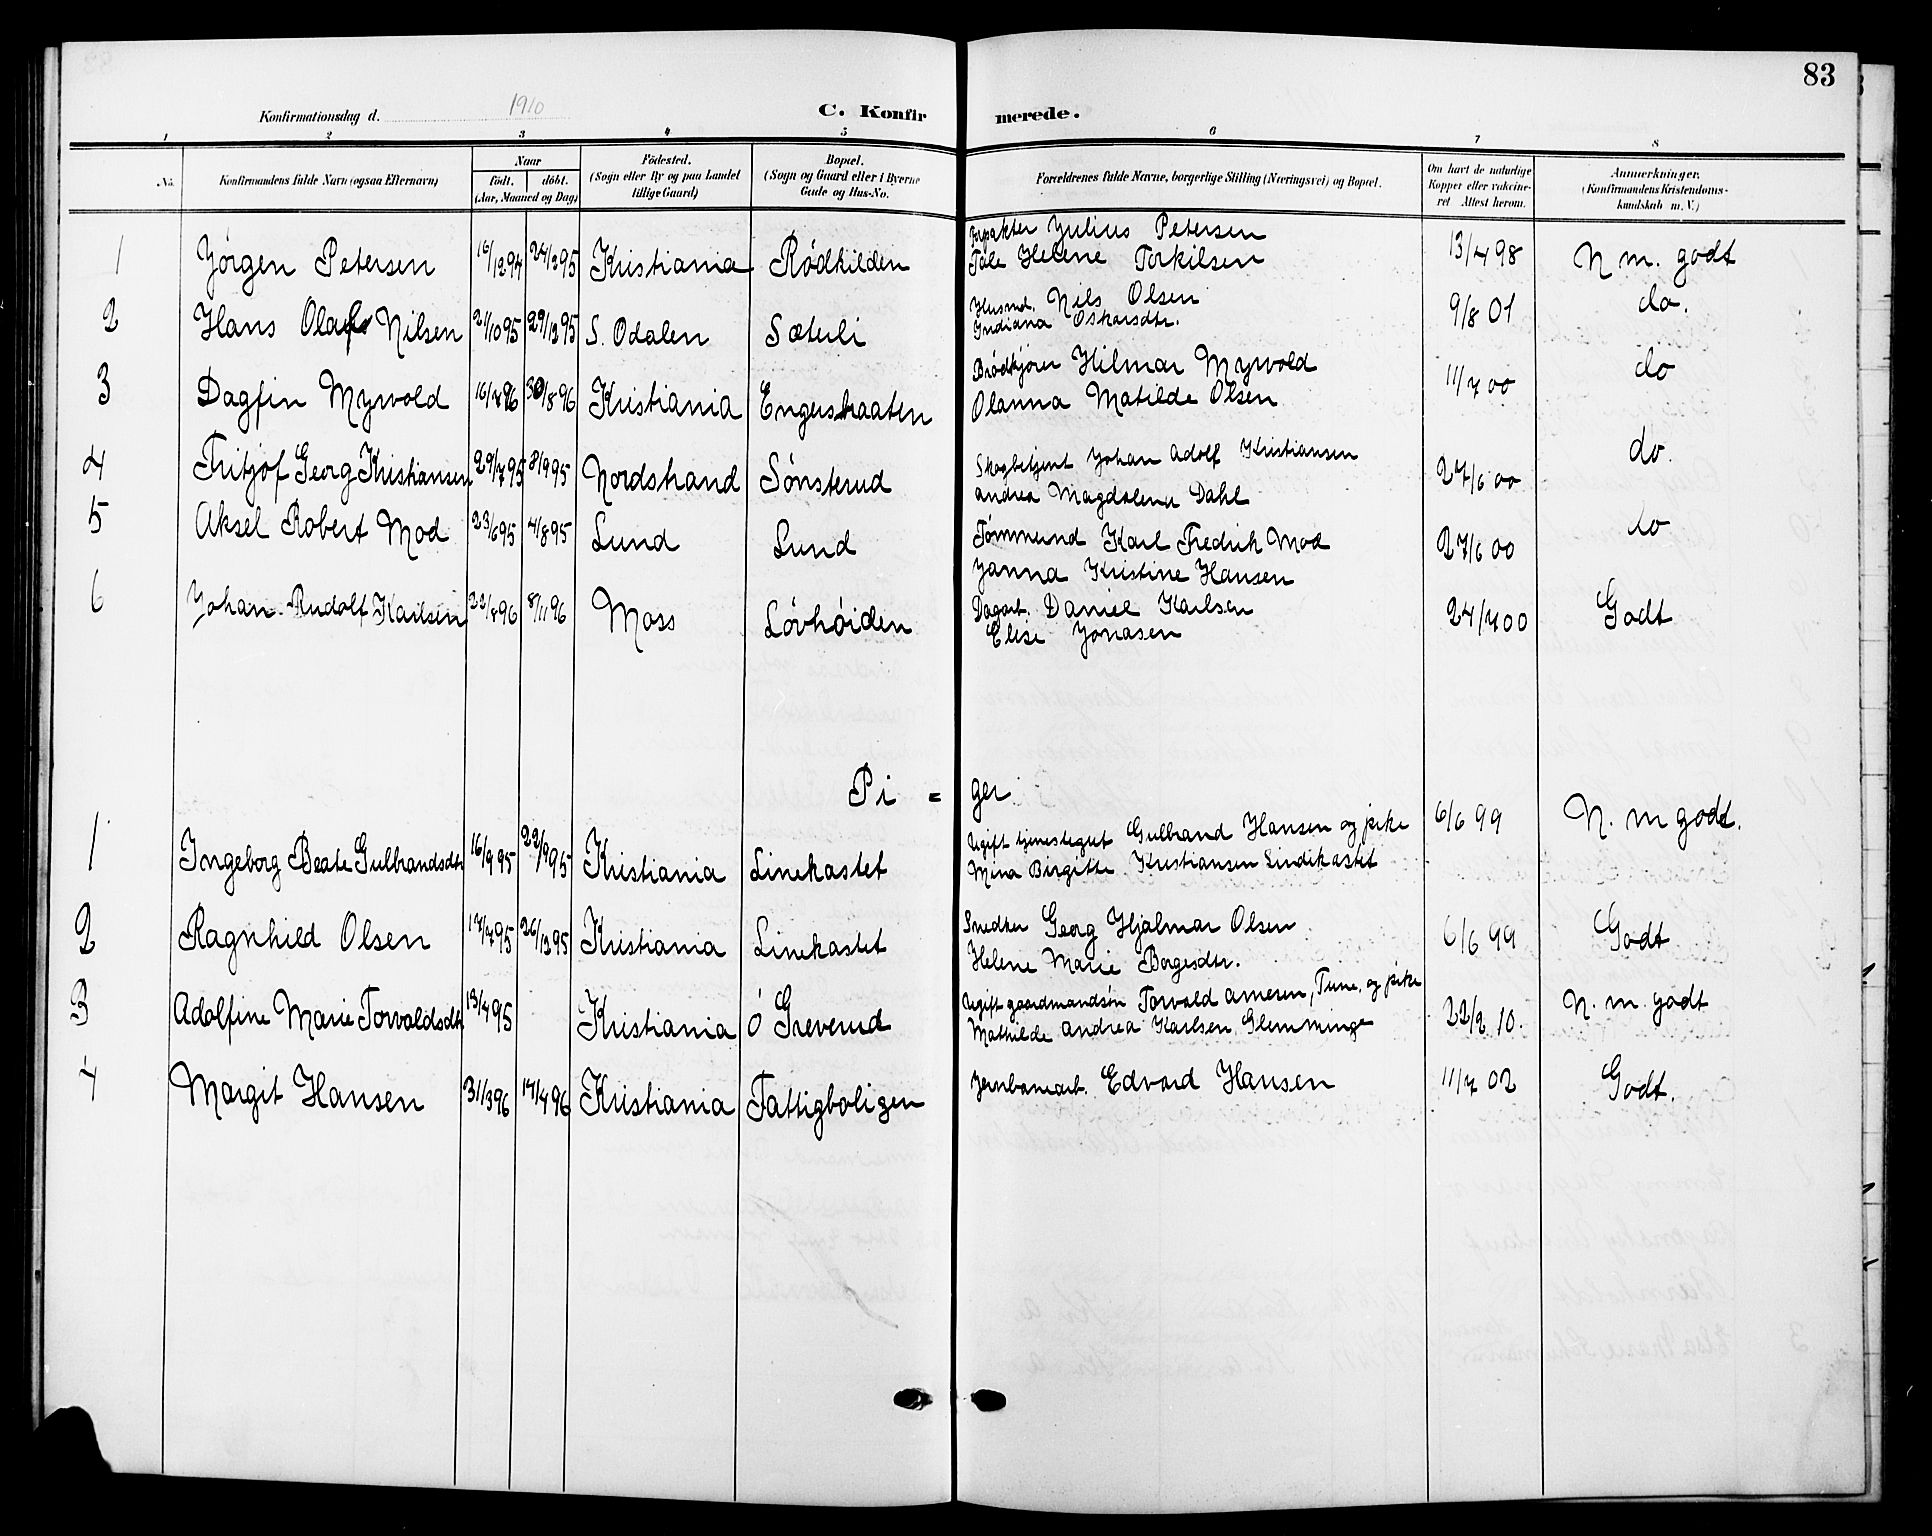 83
Konfirmationsdag d. 1910 C. Konfirmerede.
1 2 3 4 5 6 7 8
No. Konfirmandens fulde Navn (ogsaa Efternavn) Naar født. døbt. (Aar, Maaned og Dag) Födested. (Sogn eller By og paa Landet tillige Gaard) Bopæl. (Sogn og Gaard eller i Byerne Gade og Hus-No. Forældrenes fulde Navne, borgerlige Stilling (Næringsvei) og Bopæl. Om havt de naturlige Kopper eller vaccineret Attest herom. Anmerkninger. (Konfirmandens Kristendomskundskab m. V.)
1 Jörgen Petersen 16/12 94 24/2 95 Kristiania Rødkilden Julius Petersen 13/4 98 N m. godt
Tale Helene Torkilsen
2 Hans Olaf Nilsen 21/10 95 29/12 95 S. Odalen Sæterli Husmd. Nils Olsen 9/8 01 do.
Indiana Oskarsdtr.
3 Dagfin Myrvold 16/7 96 30/8 96 Kristiania Engerskraaten Brødkjører Hilmar Myrvold 11/7 00 do
Olanna Matilde Olsen
4 Fritjof Georg Kristiansen 29/7 95 8/9 95 Nordstrand Sønsterud Skogbetjent Johan Adolf Kristiansen 27/6 00 do.
Andrea Magdalena Dahl
5 Aksel Robert Mod 23/6 95 4/8 95 Lund Lund Tømmermd Karl Fredrik Mod 27/6 00 do
Janna Kristine Hansen
6 Johan Rudolf Karlsen 22/8 96 8/11 96 Moss Løvhøiden Dagarb. Daniel Karlsen 24/7 00 Godt
Elise Jonasen
Pi = ger
1 Ingeborg Beate Gulbrandsdtr 16/9 95 22/9 95 Kristiania Linekastet Ugift tjenestegut Gulbrand Hansen og pike 6/6 99 N. m godt.
Mina Birgitte Kristiansen Lindikastet
2 Ragnhild Olsen 17/7 95 26/12 95 Kristiania Linekastet Snedker Georg Hjalmar Olsen 6/6 99 Godt
Helene Marie Borgesdtr.
3 Adolfine Marie Torvaldsdtr 13/4 95 Kristiania Ö Greverud Ugift gaardmandsøn Torvald Arnesen, Tune, og pike 22/2 10. N. m. godt
Mathilde Andrea Karlsen Glemminge
4 Margit Hansen 31/3 96 17/4 96 Kristiania Fattigboligen Jernbanearb. Edvard Hansen 11/7 02 Godt.